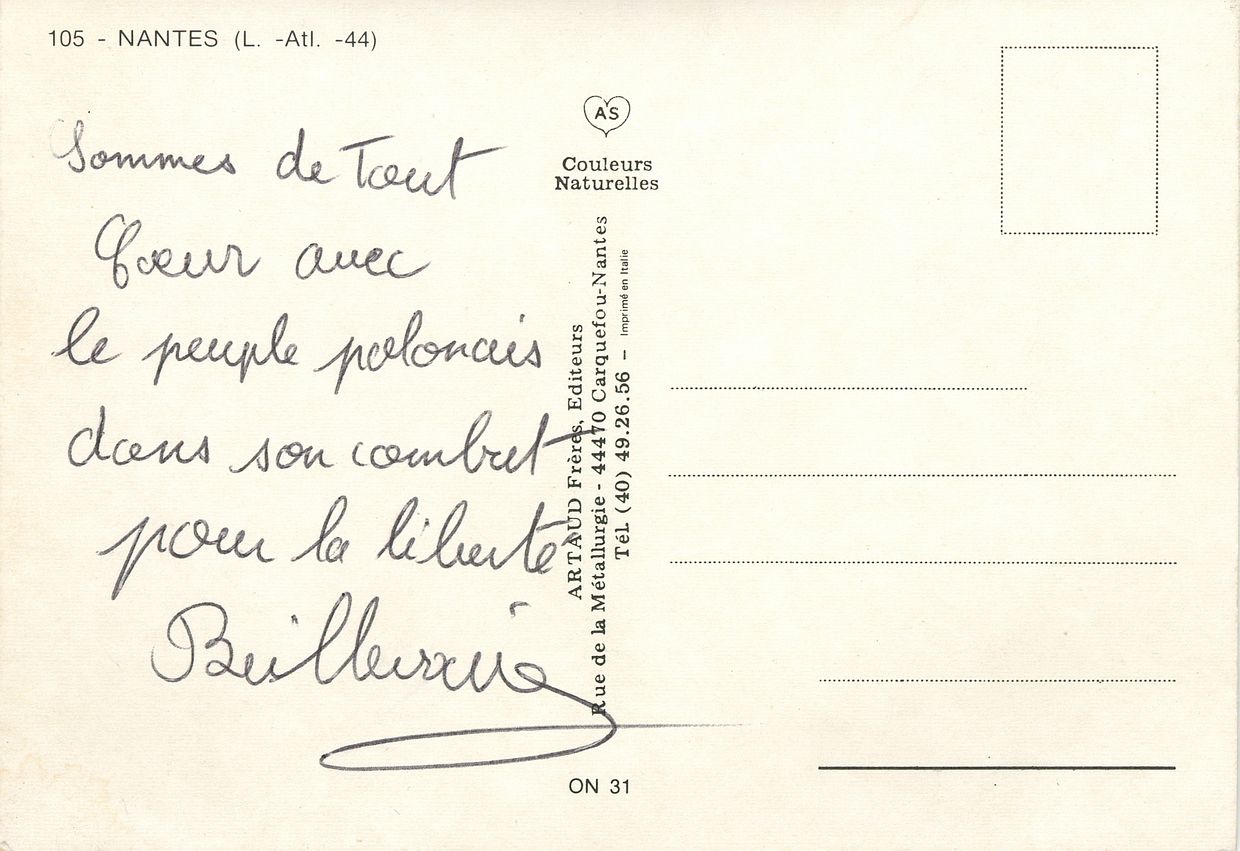 105 - NANTES (L. -Atl. -44)
Sommes de Tout
Cœur avec
le peuple polonais
dans son combat
pour la liberté
AS
Couleurs
Naturelles
ARTAUD Frères, Editeurs
Rue de la Métallurgie - 44470 Carquefou-Nantes
Tél. (40) 49.26.56 – Imprimé en Italie
ON 31